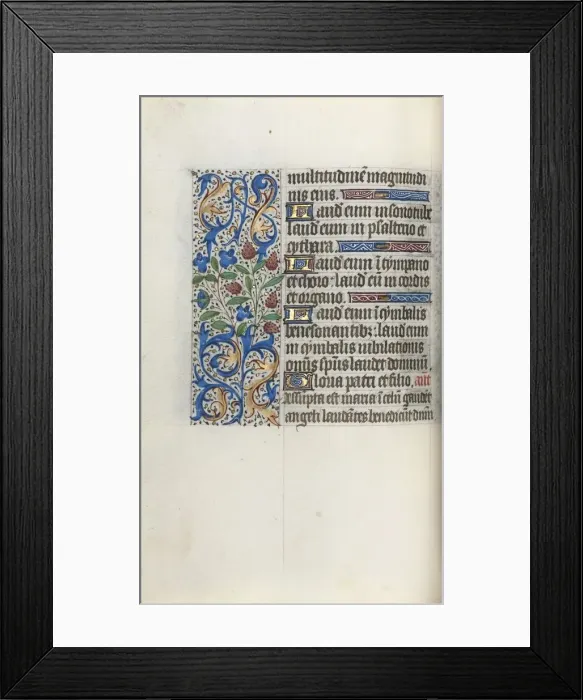 multitudinē magnitudi
nis eius.
Laud eum in sono tube
laud eum in psalterio et
cythara.
Laud eum ī tympano
et choro: laud eū in cordis
et organo.
Laud eum ī cymbalis
benesonantibꝰ: laud eum
in cymbalis iubilationis
omīs sp̄us laudet dominū.
Gloria patri et filio. añt
Assūpta est maria ī celū gaudēt
angeli laudātes benedicūt dnm̄